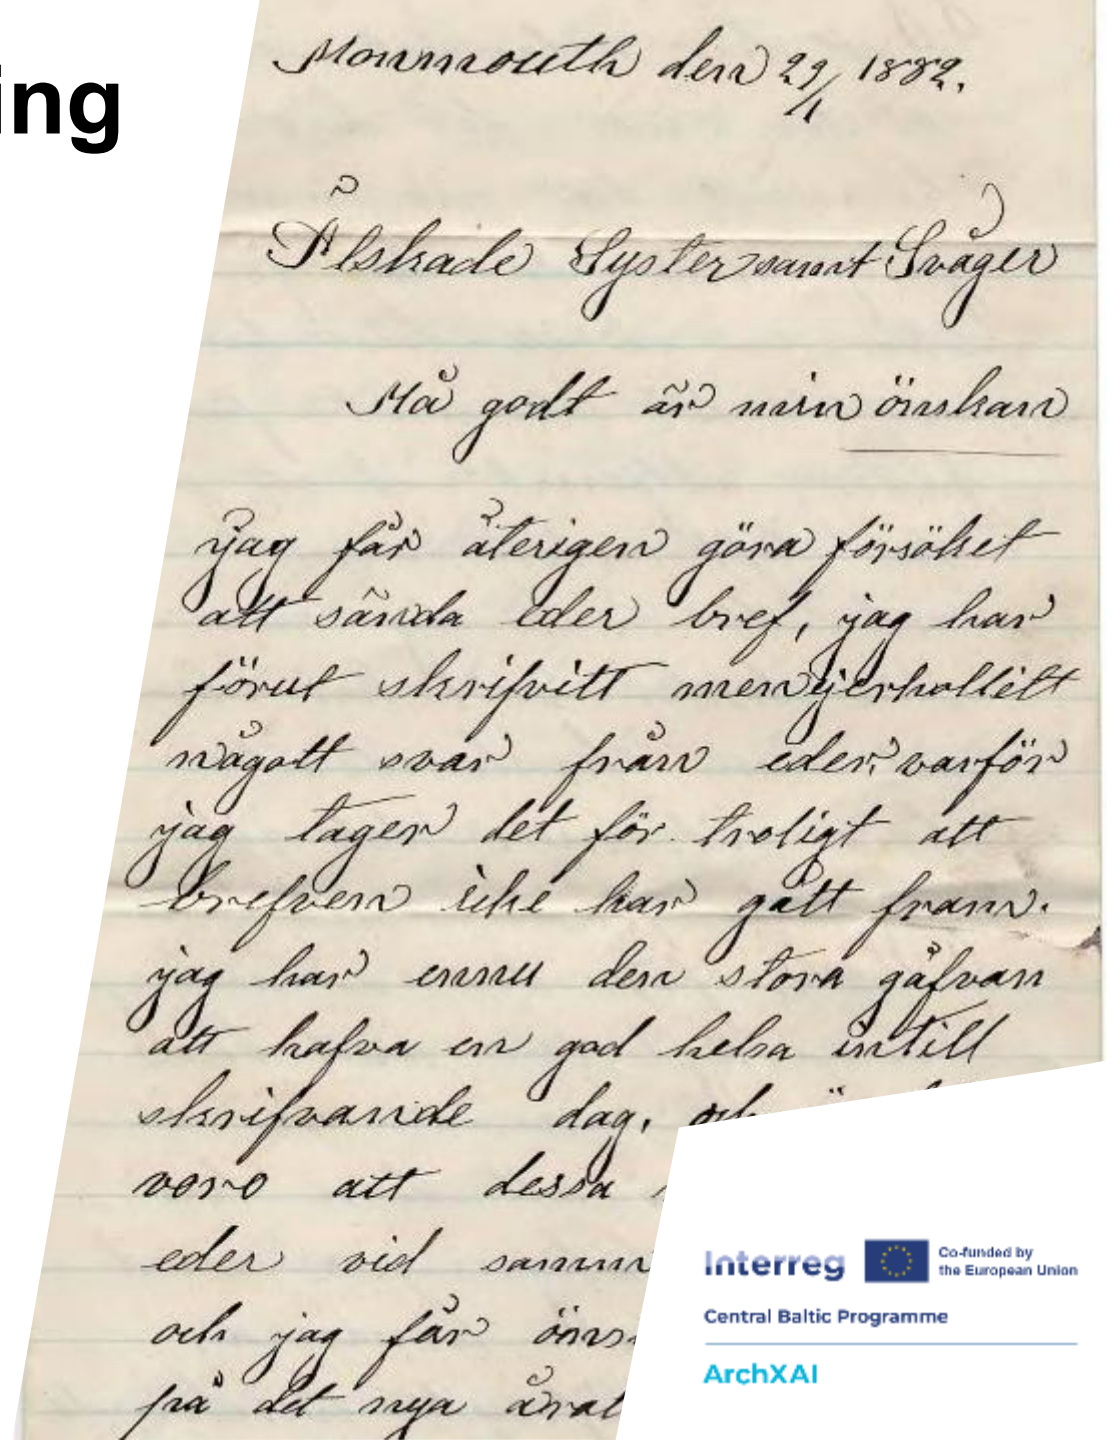 ing
Monmouth den 29/1 1882.
Älskade Syster samt Svåger
Må godt är min önskan
jag får återigen göra försöket
att sända eder bref, jag har
förut skrifvitt men ej erhollitt
någott svar från eder, varför
jag tager det för troligt att
brefven icke har gått fram.
jag har ennu den stora gåfvan
att hafva en god helsa intill
skrifvande dag, och
voro att dessa
eder vid samm
och jag får öns
på det nya året
Interreg
Co-funded by
the European Union
Central Baltic Programme
ArchXAI